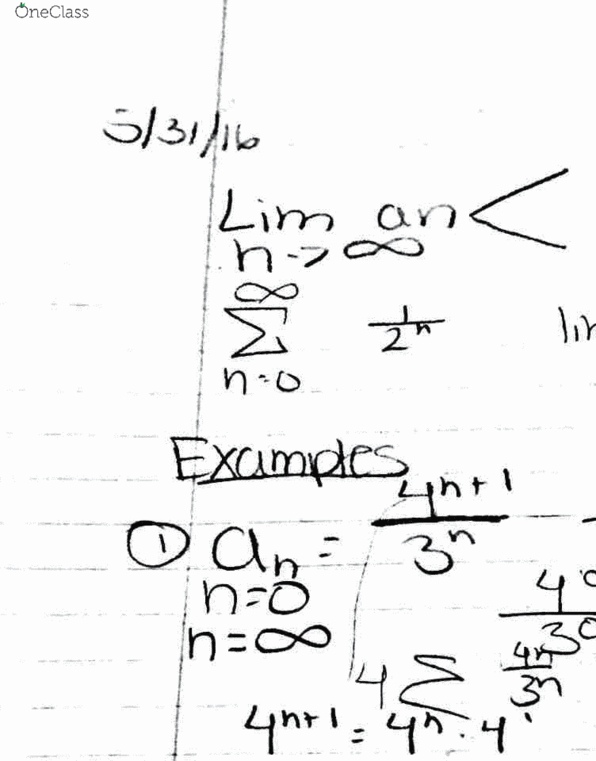 OneClass
5/31/16
Lim an <
n -> ∞
∞
Σ 1/2^n
n=0
Examples
① a_n = 4^{n+1}/3^n
n=0
n=∞
4^0/3^0
4 Σ 4^n/3^n
4^{n+1} = 4^n · 4^1